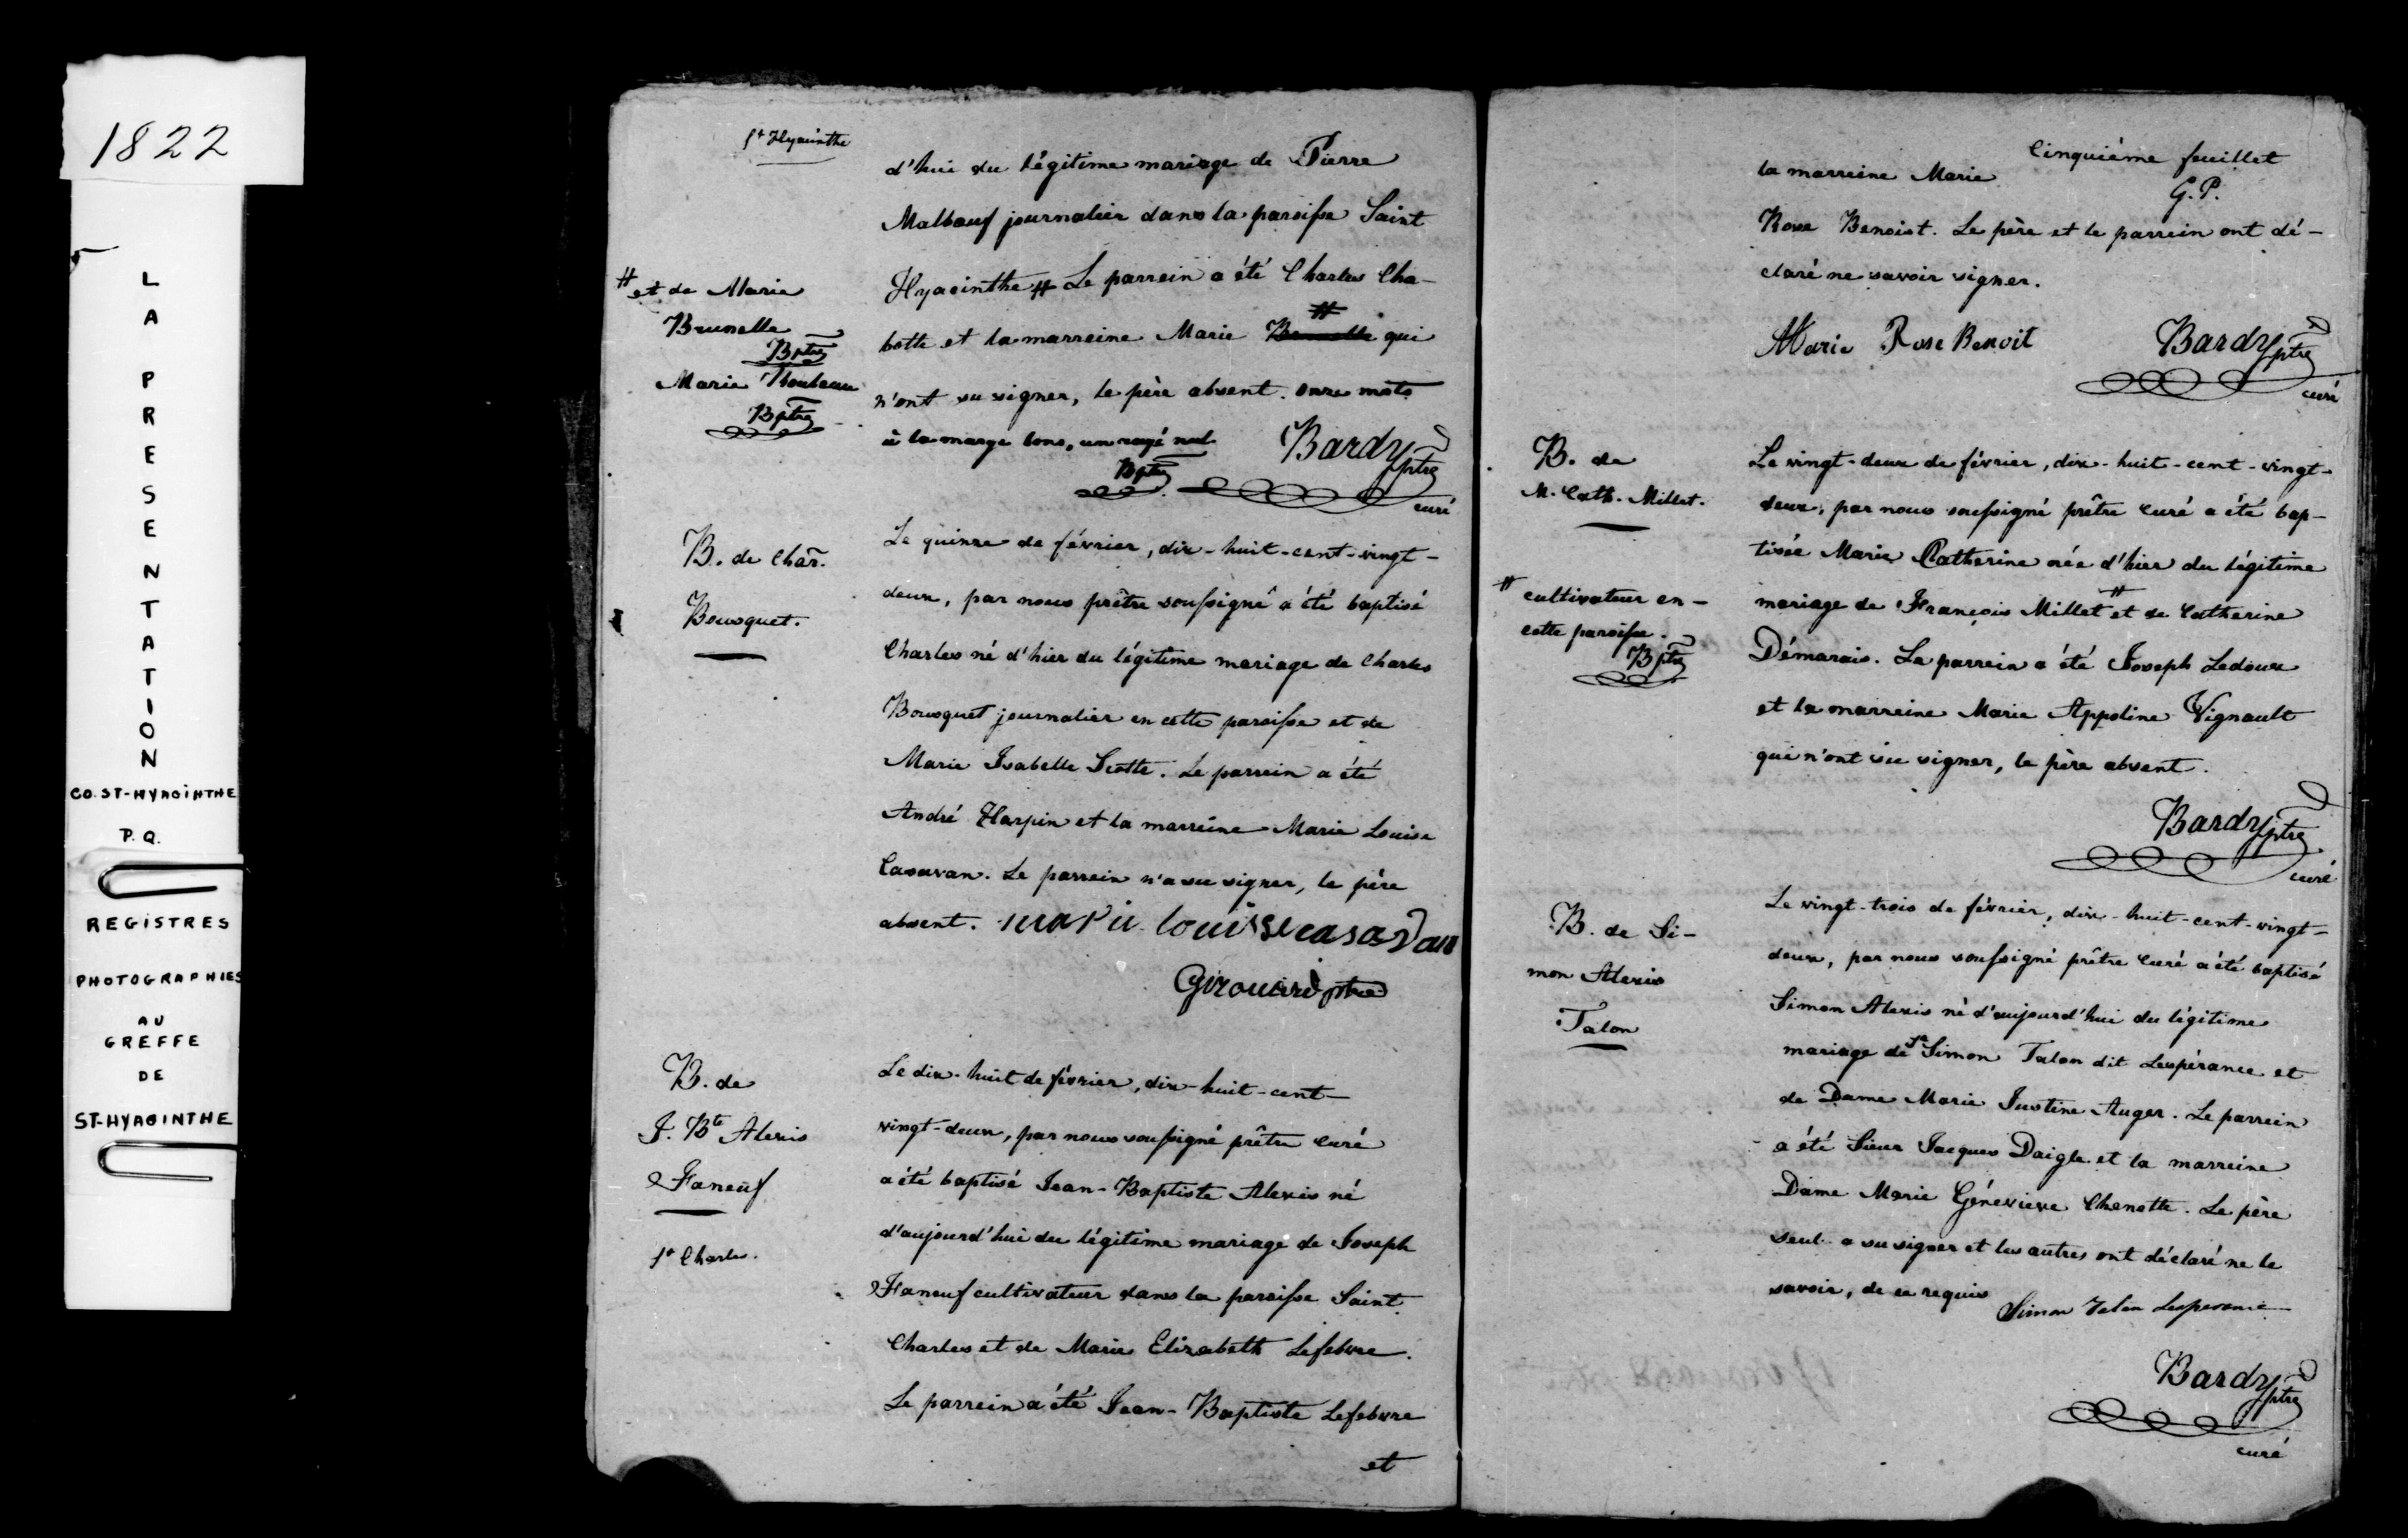 1822
LA PRESENTATION
CO. ST-HYACINTHE
P.Q.
REGISTRES
PHOTOGRAPHIES
AU
GREFFE
DE
ST-HYACINTHE
St Hyacinthe
d'hui du légitime mariage de Pierre
Malbœuf journalier dans la paroisse Saint
Hyacinthe # Le parrein a été Charles Cha-
botte et la marreine Marie # qui
n'ont su signer, le père absent. onze mots
à la marge bons, un rayé nul
Bptre
Bardy ptre
curé
# et de Marie
Brunelle
Bptre
Marie
Bptre
B. de Char.
Bousquet.
Le quinze de février, dix-huit-cent-vingt-
deux, par nous prêtre soussigné a été baptisé
Charles né d'hier du légitime mariage de Charles
Bousquet journalier en cette paroisse et de
Marie Isabelle Scotte. Le parrein a été
André Harpin et la marreine Marie Louise
Casavan. Le parrein n'a su signer, le père
absent. marie louisse casavan
Girouard ptre
B. de
J. Bte Alexis
Faneuf
St Charles.
Le dix-huit de février, dix-huit-cent-
vingt-deux, par nous soussigné prêtre curé
a été baptisé Jean-Baptiste Alexis né
d'aujourd'hui du légitime mariage de Joseph
Faneuf cultivateur dans la paroisse Saint
Charles et de Marie Elizabeth Lefebvre.
Le parrein a été Jean-Baptiste Lefebvre
et
Cinquiéme feuillet
G.P.
la marreine Marie
Rose Benoist. Le père et le parrein ont dé-
claré ne savoir signer.
Marie Rose Benoit
Bardy ptre
curé
B. de
M. Cath. Millet.
# cultivateur en
cette paroisse.
Bptre
Le vingt-deux de février, dix-huit-cent-vingt-
deux, par nous soussigné prêtre curé a été bap-
tisée Marie Catherine née d'hier du légitime
mariage de François Millet # et de Catherine
Démarais. Le parrein a été Joseph Ledoux
et la marreine Marie Appoline Vignault
qui n'ont su signer, le père absent.
Bardy ptre
curé
B. de Si-
mon Alexis
Talon
Le vingt-trois de février, dix-huit-cent-vingt-
deux, par nous soussigné prêtre curé a été baptisé
Simon Alexis né d'aujourd'hui du légitime
mariage de Sr Simon Talon dit Lespérance et
de Dame Marie Justine Auger. Le parrein
a été Sieur Jacques Daigle et la marreine
Dame Marie Généviève Chenette. Le père
seul a su signer et les autres ont déclaré ne le
savoir, de ce requis
Simon Talon Lesperance
Bardy ptre
curé